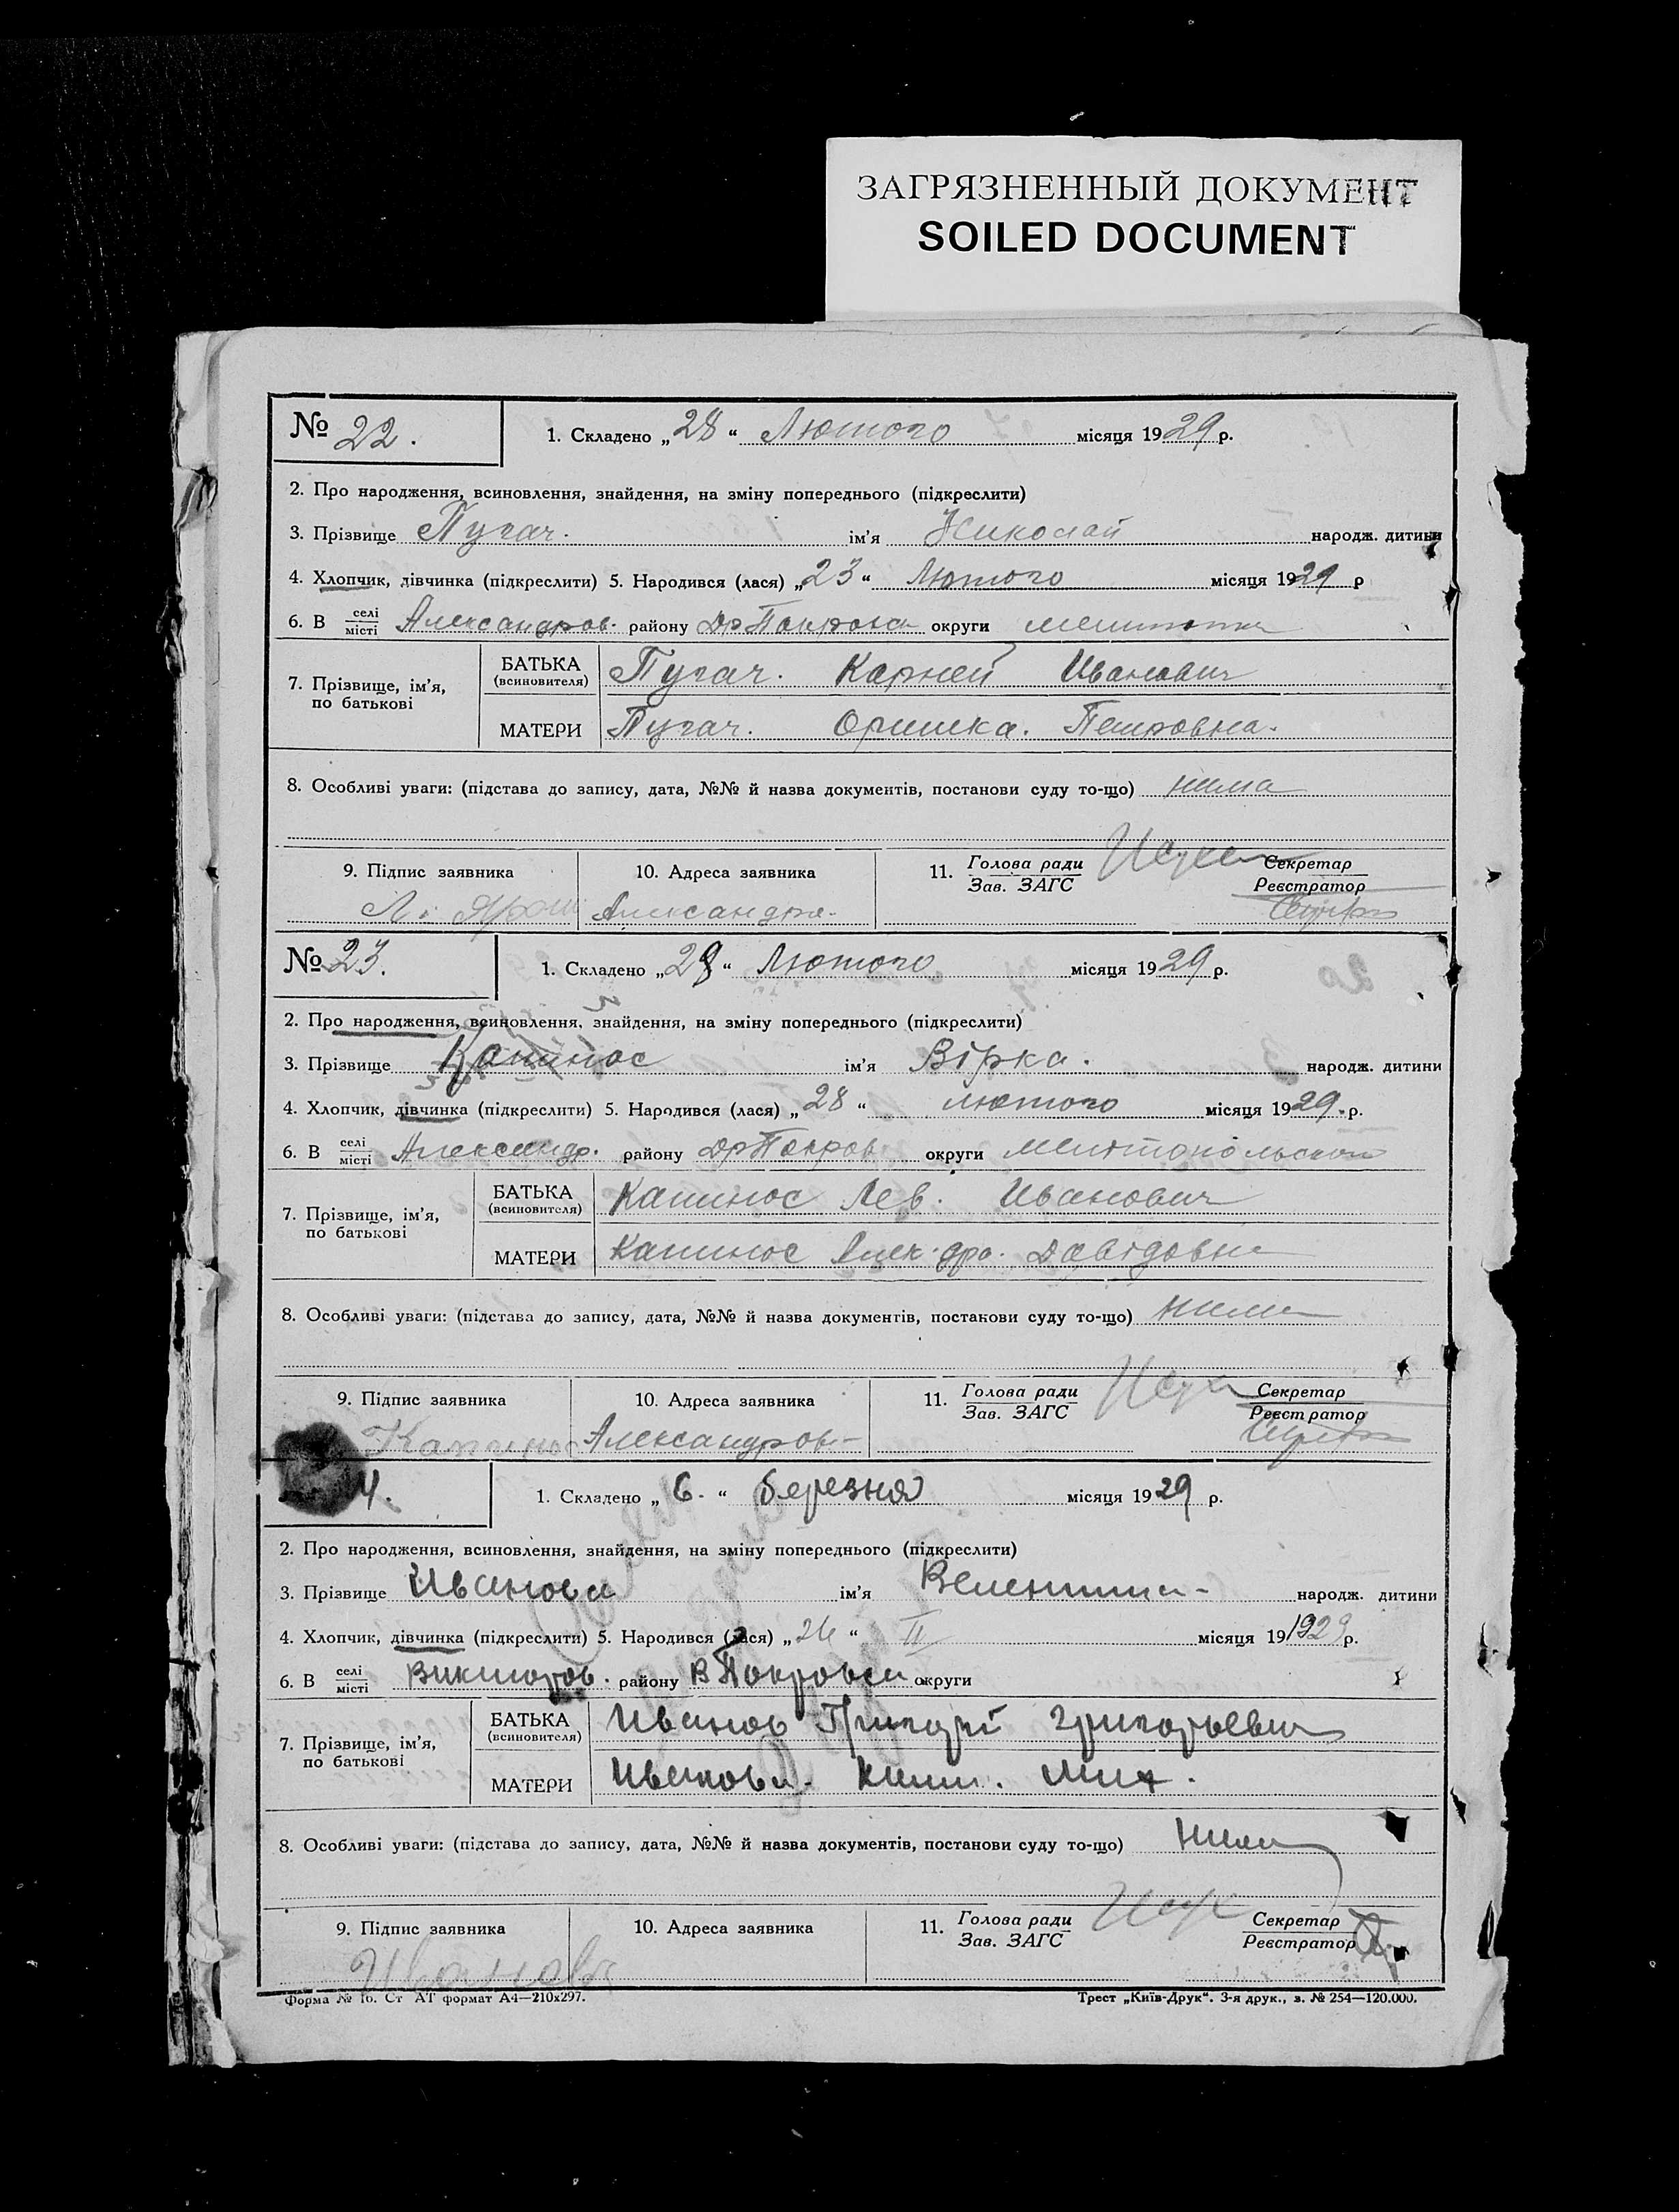 ЗАГРЯЗНЕННЫЙ ДОКУМЕНТ
SOILED DOCUMENT
№ 22. 1. Складено „28“ Лютого місяця 1929 р.
2. Про народження, всиновлення, знайдення, на зміну попереднього (підкреслити)
3. Прізвище Пугач. ім'я Николай народж. дитини
4. Хлопчик, дівчинка (підкреслити) 5. Народився (лася) „23“ Лютого місяця 1929 р
6. В селі/місті Александров. району Др Покровск округи
7. Прізвище, ім'я, по батькові
БАТЬКА (всиновителя) Пугач. Карней Иванович
МАТЕРИ Пугач. Оришка. Петровна.
8. Особливі уваги: (підстава до запису, дата, №№ й назва документів, постанови суду то-що) нима
9. Підпис заявника 10. Адреса заявника 11. Голова ради Зав. ЗАГС Секретар Реєстратор
Л. Ярош
№ 23. 1. Складено „28“ Лютого місяця 1929 р.
2. Про народження, всиновлення, знайдення, на зміну попереднього (підкреслити)
3. Прізвище Капинос ім'я Вірка. народж. дитини
4. Хлопчик, дівчинка (підкреслити) 5. Народився (лася) „28“ лютого місяця 1929 р.
6. В селі/місті Александр. району Др Покров округи Мелітопольскои
7. Прізвище, ім'я, по батькові
БАТЬКА (всиновителя) Капинос Лев. Иванович
МАТЕРИ Капинос Алек-дра. Давідовна
8. Особливі уваги: (підстава до запису, дата, №№ й назва документів, постакови суду то-що) нима
9. Підпис заявника 10. Адреса заявника 11. Голова ради Зав. ЗАГС Секретар Реєстратор
Капинос Александров-
4. 1. Складено „6.“ березня місяця 1929 р.
2. Про народження, всиновлення, знайдення, на зміну попереднього (підкреслити)
3. Прізвище Иванова ім'я Валентина- народж. дитини
4. Хлопчик, дівчинка (підкреслити) 5. Народився (лася) „ “ II місяця 191929 р.
6. В селі/місті району В Покровск округи
7. Прізвище, ім'я, по батькові
БАТЬКА (всиновителя) Иванов Григорій Григорьевич
МАТЕРИ Иванова.
8. Особливі уваги: (підстава до запису, дата, №№ й назва документів, постанови суду то-що) Нима
9. Підпис заявника 10. Адреса заявника 11. Голова ради Зав. ЗАГС Секретар Реєстратор
Иванова
Форма № 1б. Ст АТ формат А4—210х297. Трест „Київ-Друк“. 3-я друк., з. № 254—120.000.